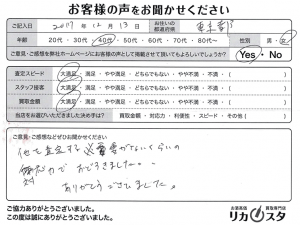 お客様の声をお聞かせください
ご記入日 2017年12月13日 お住いの都道府県 東京都
年齢 20代・30代・40代・50代・60代・70代・80代～ 性別 男・女
ご意見・ご感想を弊社ホームページにお客様の声として掲載させて頂いてもよろしいでしょうか? Yes・No
査定スピード 大満足・満足・やや満足・どちらでもない・やや不満・不満・( )
スタッフ接客 大満足・満足・やや満足・どちらでもない・やや不満・不満・( )
買取金額 大満足・満足・やや満足・どちらでもない・やや不満・不満・( )
当店をお選びいただきました決め手は? 買取金額・対応力・利便性・スピード・その他( )
ご意見・ご感想などぜひお聞かせください
他を査定する必要がないくらいの
対応力でおどろきました。
ありがとうございました。
ご協力ありがとうございました。
この度は誠にありがとうございました。
お酒高価 買取専門店
リカスタ